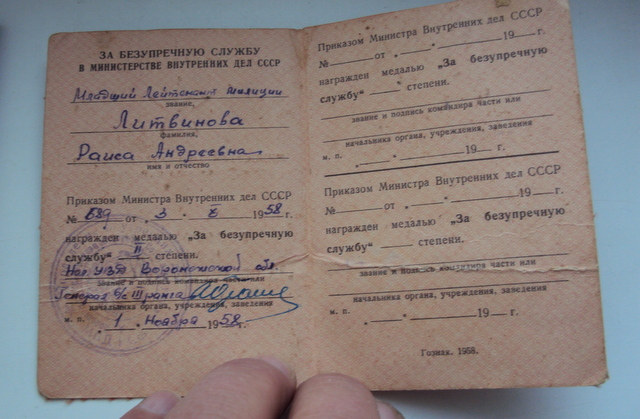 ЗА БЕЗУПРЕЧНУЮ СЛУЖБУ
В МИНИСТЕРСТВЕ ВНУТРЕННИХ ДЕЛ СССР
Младший Лейтенант милиции
звание,
Литвинова
фамилия,
Раиса Андреевна
имя и отчество
Приказом Министра Внутренних дел СССР
№ 689 от 3 1958 г.
награжден медалью „За безупречную
службу" II степени.
Нач УВД Воронежской обл.
звание и подпись командира части или
Генерал в/с III ранга
начальника органа, учреждения, заведения
м. п. 1 Ноября 1958 г.
Приказом Министра Внутренних дел СССР
№ от 19 г.
награжден медалью „За безупречную
службу" степени.
звание и подпись командира части или
начальника органа, учреждения, заведения
м. п. 19 г.
Приказом Министра Внутренних дел СССР
№ от 19 г.
награжден медалью „За безупречную
службу" степени.
звание и подпись командира части или
начальника органа, учреждения, заведения
м. п. 19 г.
Гознак. 1958.